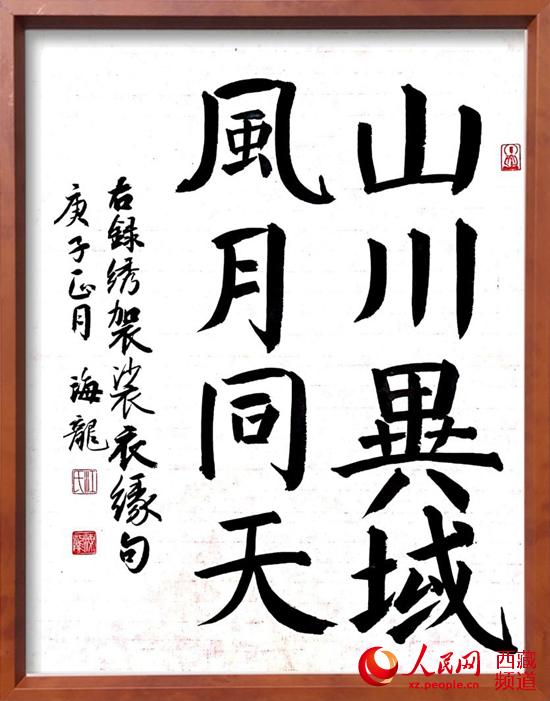 山川異域
風月同天
右録绣袈裟衣缘句
庚子正月 海龍
江氏
人民网 西藏频道
xz.people.cn